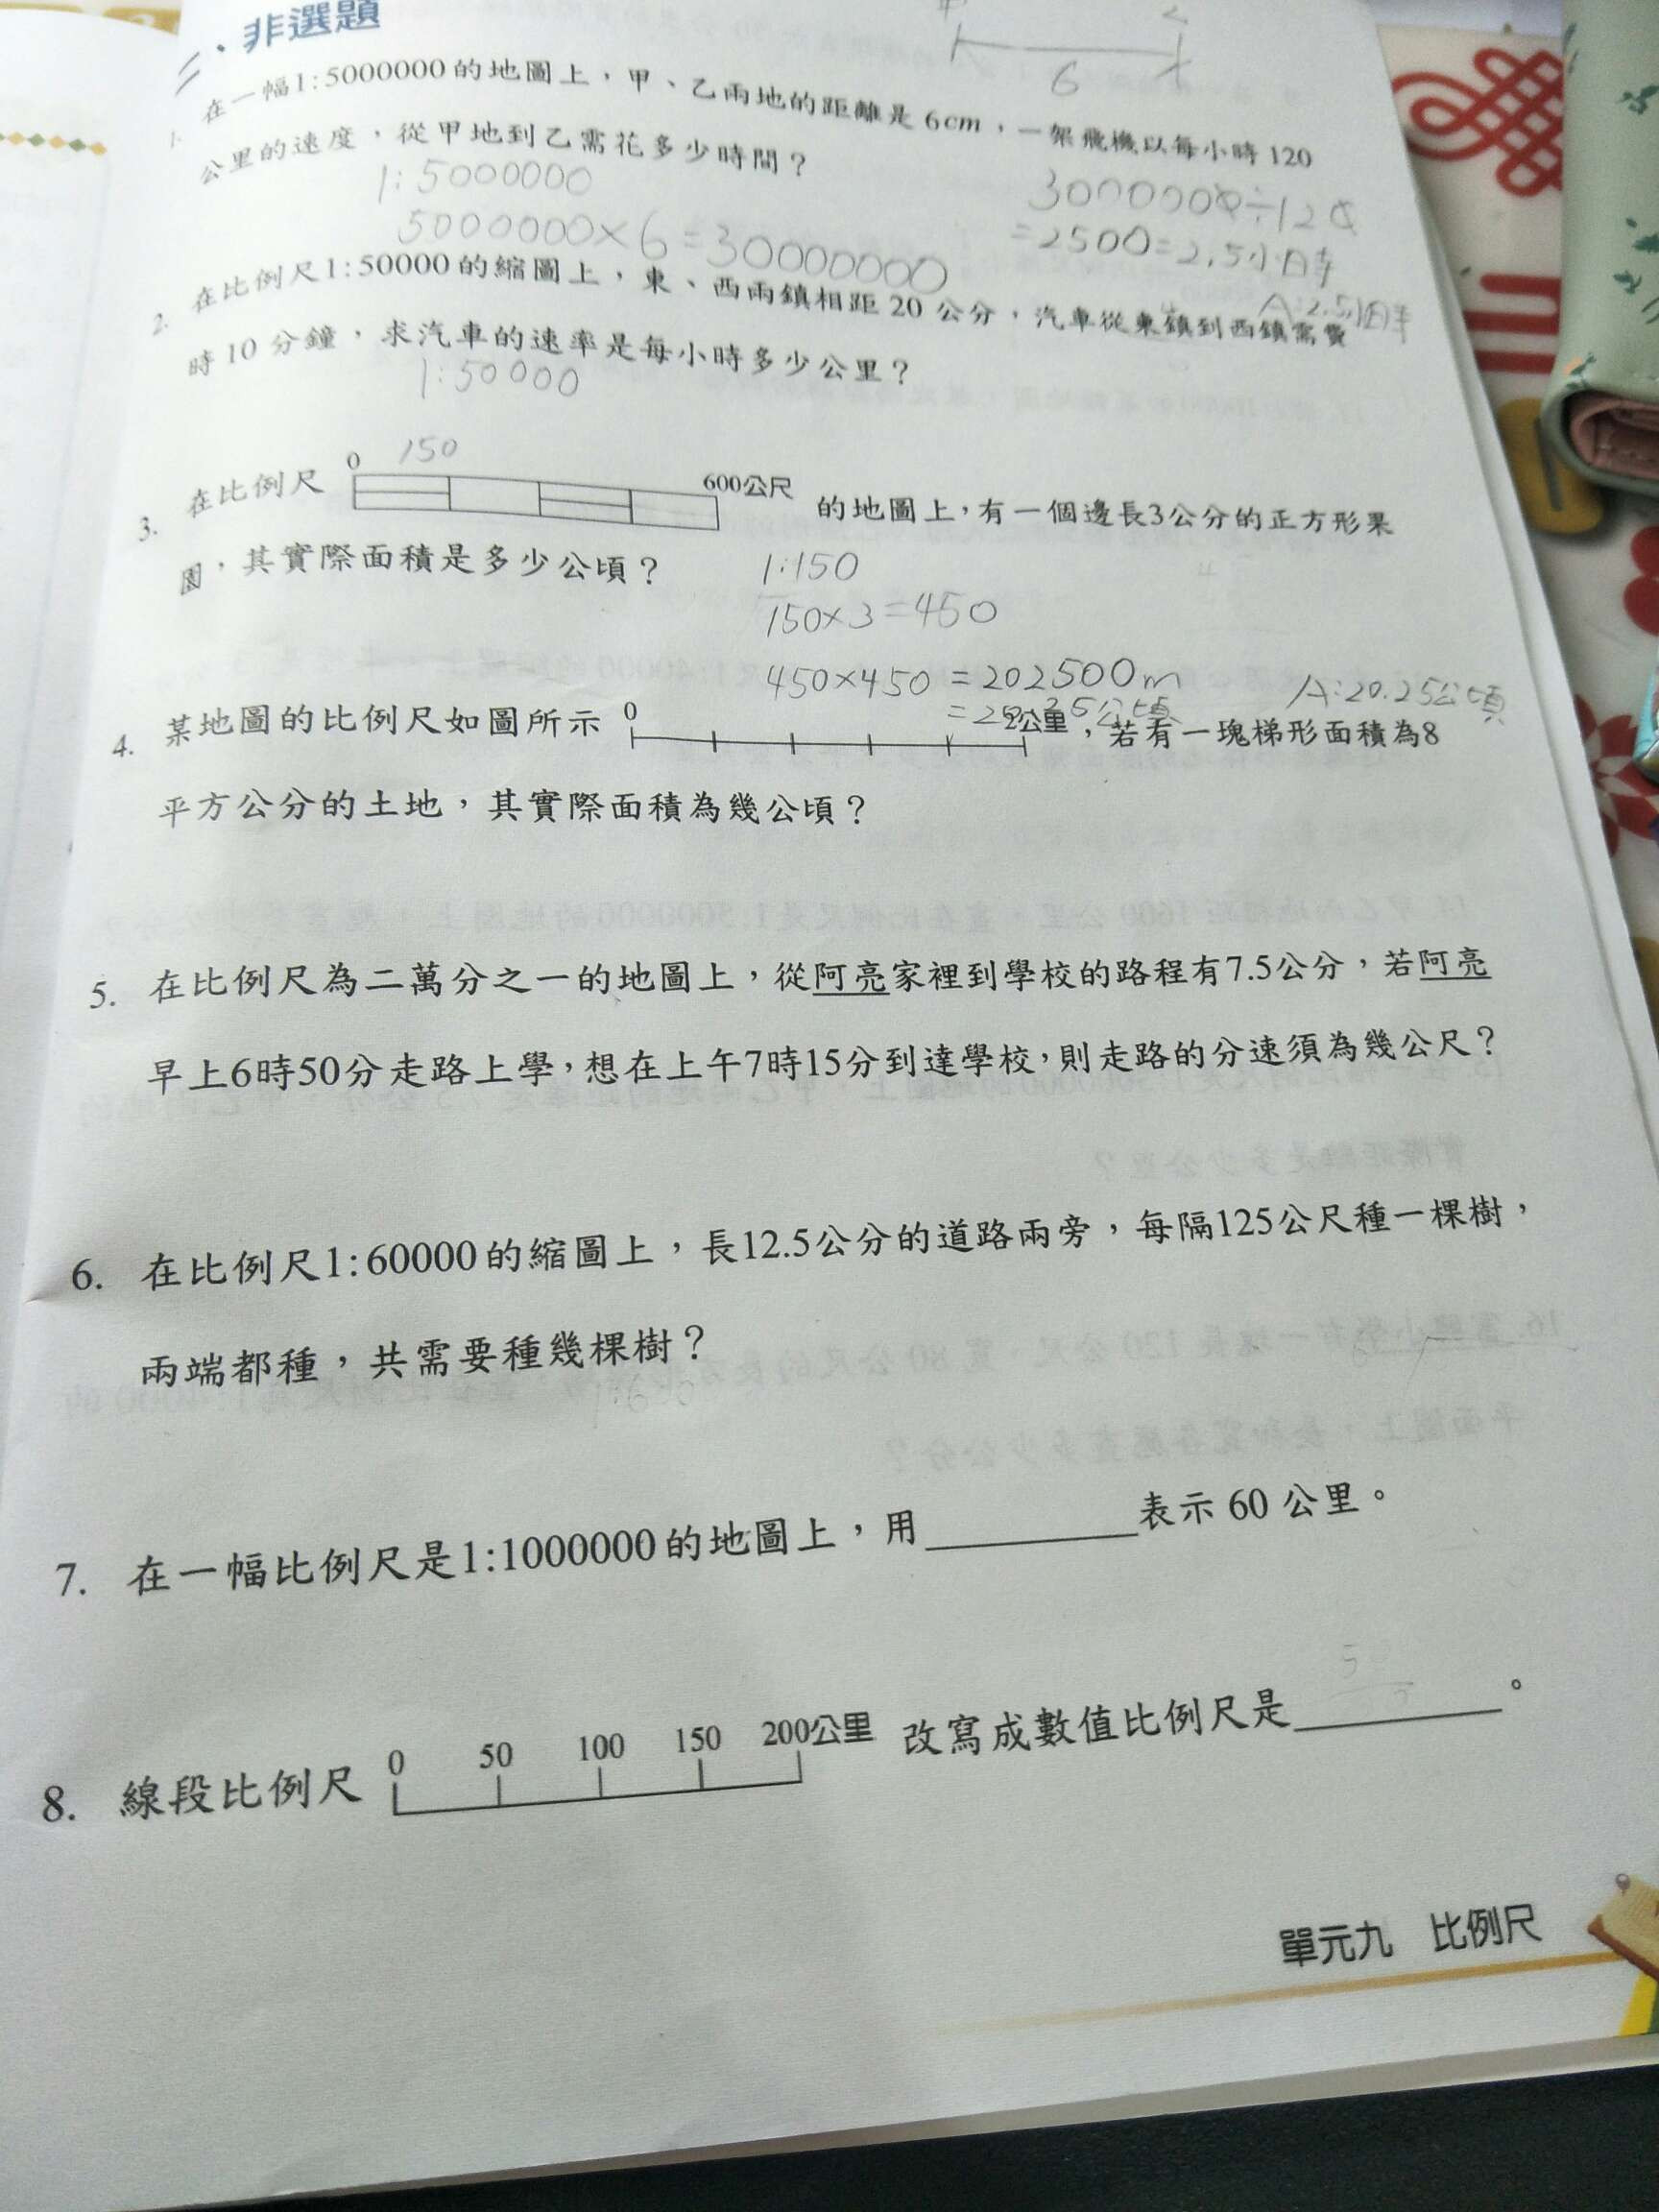 二、非選題
甲 乙
6
1. 在一幅1:5000000的地圖上，甲、乙兩地的距離是 6cm，一架飛機以每小時 120
公里的速度，從甲地到乙需花多少時間？
1:5000000
30000000÷120
5000000×6=30000000
=2500=2.5小時
A:2.5小時
2. 在比例尺1:50000的縮圖上，東、西兩鎮相距 20 公分，汽車從東鎮到西鎮需費
時 10 分鐘，求汽車的速率是每小時多少公里？
1:50000
150
3. 在比例尺 0 600公尺 的地圖上，有一個邊長3公分的正方形果
園，其實際面積是多少公頃？
1:150
150×3=450
450×450 =202500m
A:20.25公頃
4. 某地圖的比例尺如圖所示 0 2公里，若有一塊梯形面積為8
平方公分的土地，其實際面積為幾公頃？
5. 在比例尺為二萬分之一的地圖上，從阿亮家裡到學校的路程有7.5公分，若阿亮
早上6時50分走路上學，想在上午7時15分到達學校，則走路的分速須為幾公尺？
6. 在比例尺1:60000的縮圖上，長12.5公分的道路兩旁，每隔125公尺種一棵樹，
兩端都種，共需要種幾棵樹？
7. 在一幅比例尺是1:1000000的地圖上，用 表示 60 公里。
8. 線段比例尺 0 50 100 150 200公里 改寫成數值比例尺是 。
單元九 比例尺